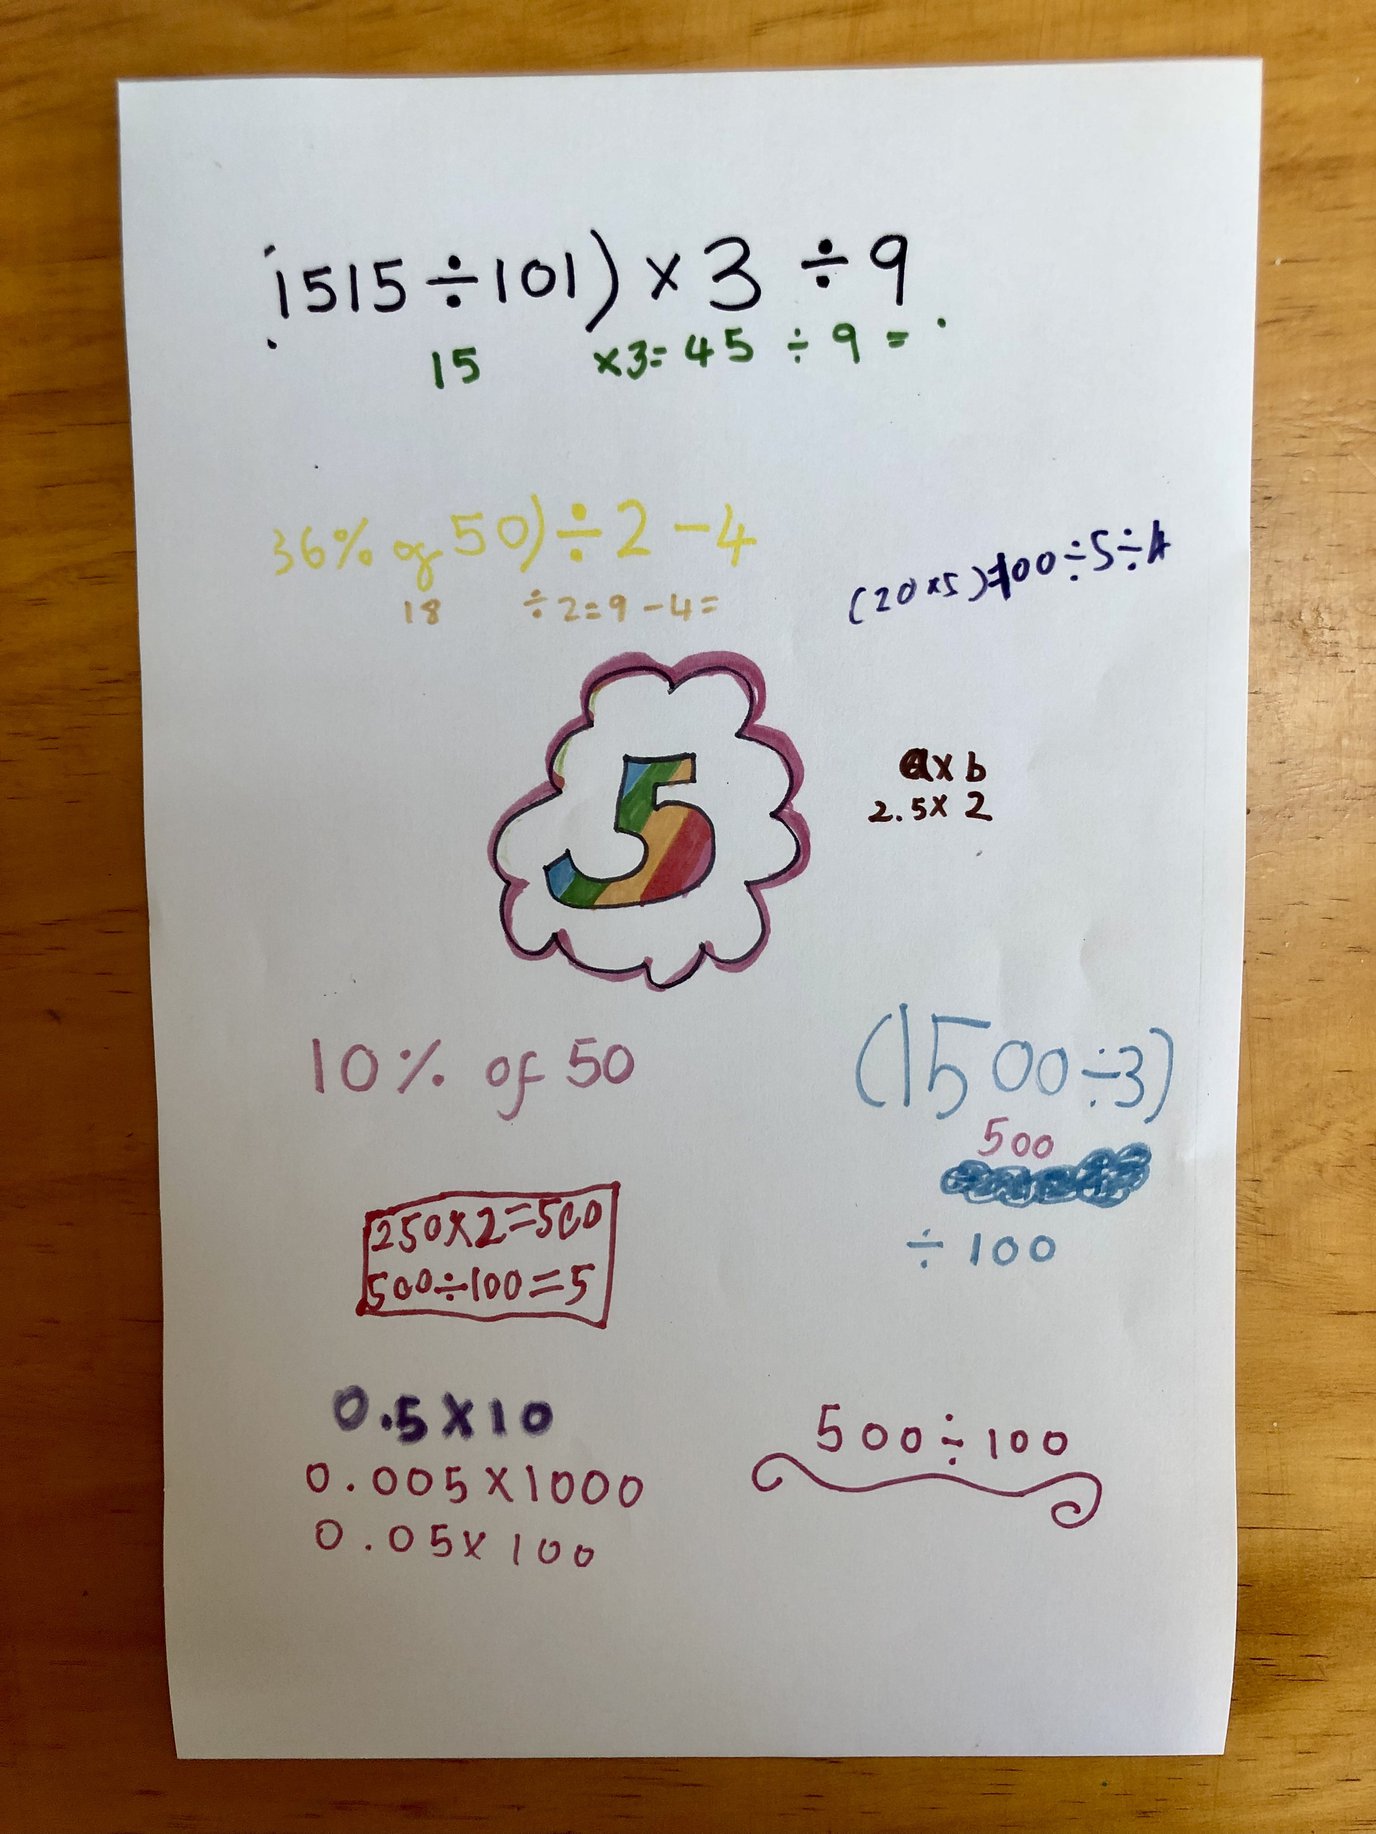 1515÷101) × 3 ÷ 9
15 ×3= 45 ÷ 9 =
36% of 50) ÷ 2 - 4
18 ÷2=9-4=
(20×5)=100÷5÷4
5
a×b
2.5×2
10% of 50
(1500÷3)
500
÷ 100
250×2=500
500÷100=5
0.5×10
0.005×1000
0.05×100
500÷100